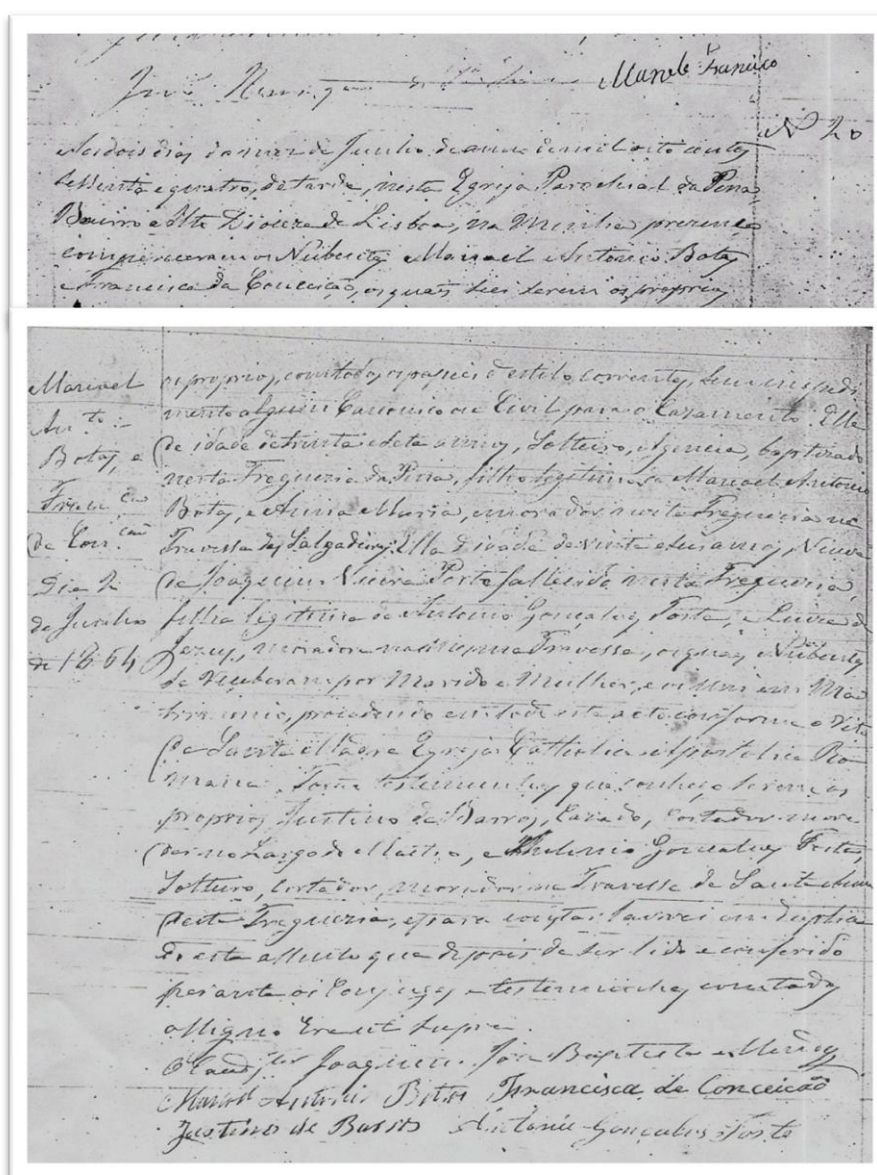 Manoel Francisco
Nº 20
Aos dois dias do mez de Junho de anno de mil oito centos
sessenta e quatro, de tarde, nesta Egreja Parochial da Pena
Bairro Alto Diocese de Lisboa, na minha presença
compareceram os Nubentes Manoel Antonio Botas
e Francisca da Conceição, os quais sei serem os proprios
Manoel
Antº
Botas, e
Francca
da Concam
Dia 2
de Junho
de 1864
os proprios, com todos os papeis d'estilo correntes, sem impedi
mento algum Canonico ou Civil para o Cazamento. Elle
de idade de trinta e sete annos, Solteiro, Agencia, baptizado
nesta Freguezia da Pena, filho legitimo de Manoel Antonio
Botas, e Anna Maria, morador nesta Freguezia na
Travessa das Salgadeiras. Ella d'idade de vinte e seis annos, Viuva
de Joaquim Vieira Porto fallecido nesta Freguezia,
filha legitima de Antonio Gonçalves Forte, e Luiza de
Jezus, moradora na mesma Travessa, os quaes Nubentes
se receberam por Marido e Mulher, e os uni em Ma
trimonio, procedendo em todo este acto conforme o Rito
da Santa Madre Egreja Catholica Apostolica Ro
mana. Foram testemunhas que conheço serem os
proprios Justino de Barros, Cazado, Cortador mora
dor no Largo do Mastro, e Antonio Gonçalves Forte,
Solteiro, Cortador, morador na Travessa de Santa Anna
desta Freguezia, e para constar lavrei em duplica
do este assento que depois de ser lido e conferido
perante os Conjuges e testemunhas com todos
assigno Era ut supra.
O Coadjtor Joaquim José Baptista
Manoel Antonio Botas Francisca da Conceicão
Justino de Barros Antonio Gonçalves Forte